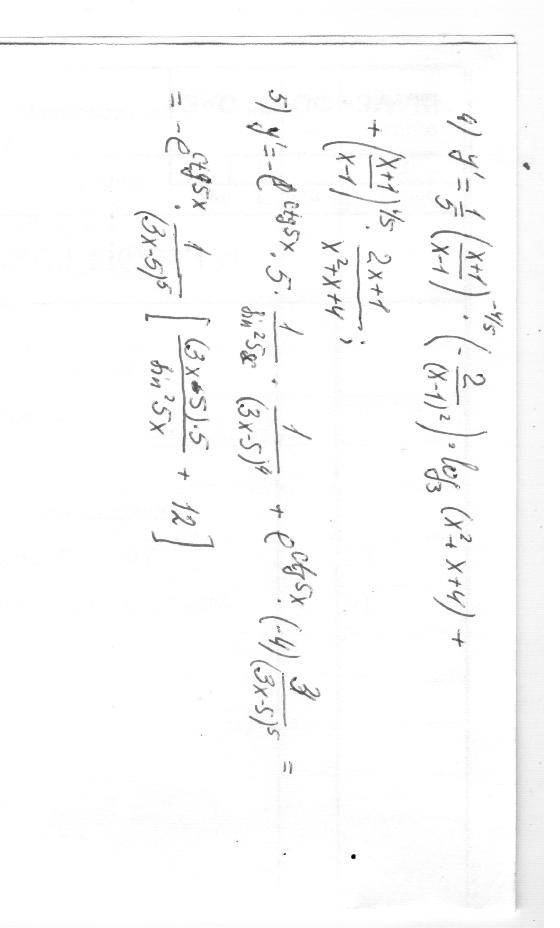 4) y' = 1/5 ((x+1)/(x-1))^(-4/5) · (- 2/(x-1)²) · log₃ (x²+x+4) +
+ ((x+1)/(x-1))^(1/5) · (2x+1)/(x²+x+4) ;
5) y' = -e^(ctg5x) · 5 · 1/(sin²5x) · 1/(3x-5)⁴ + e^(ctg5x) · (-4) 3/(3x-5)⁵ =
= -e^(ctg5x) · 1/(3x-5)⁵ [ ((3x-5)·5)/(sin²5x) + 12 ]